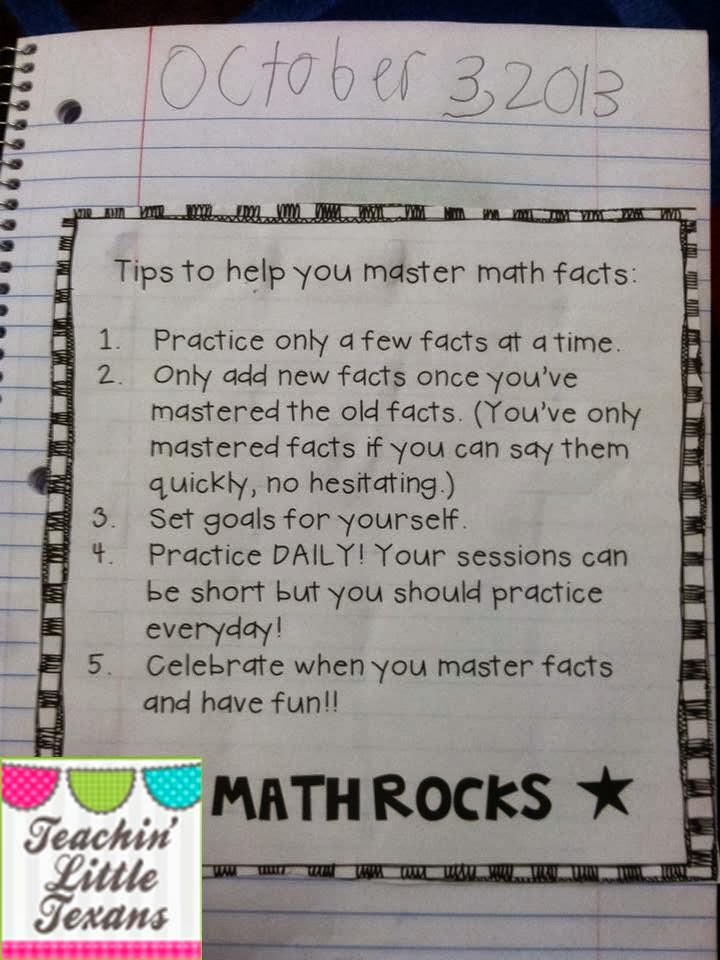 October 3, 2013
Tips to help you master math facts:
1. Practice only a few facts at a time.
2. Only add new facts once you've
mastered the old facts. (You've only
mastered facts if you can say them
quickly, no hesitating.)
3. Set goals for yourself.
4. Practice DAILY! Your sessions can
be short but you should practice
everyday!
5. Celebrate when you master facts
and have fun!!
MATH ROCKS
Teachin'
Little
Texans